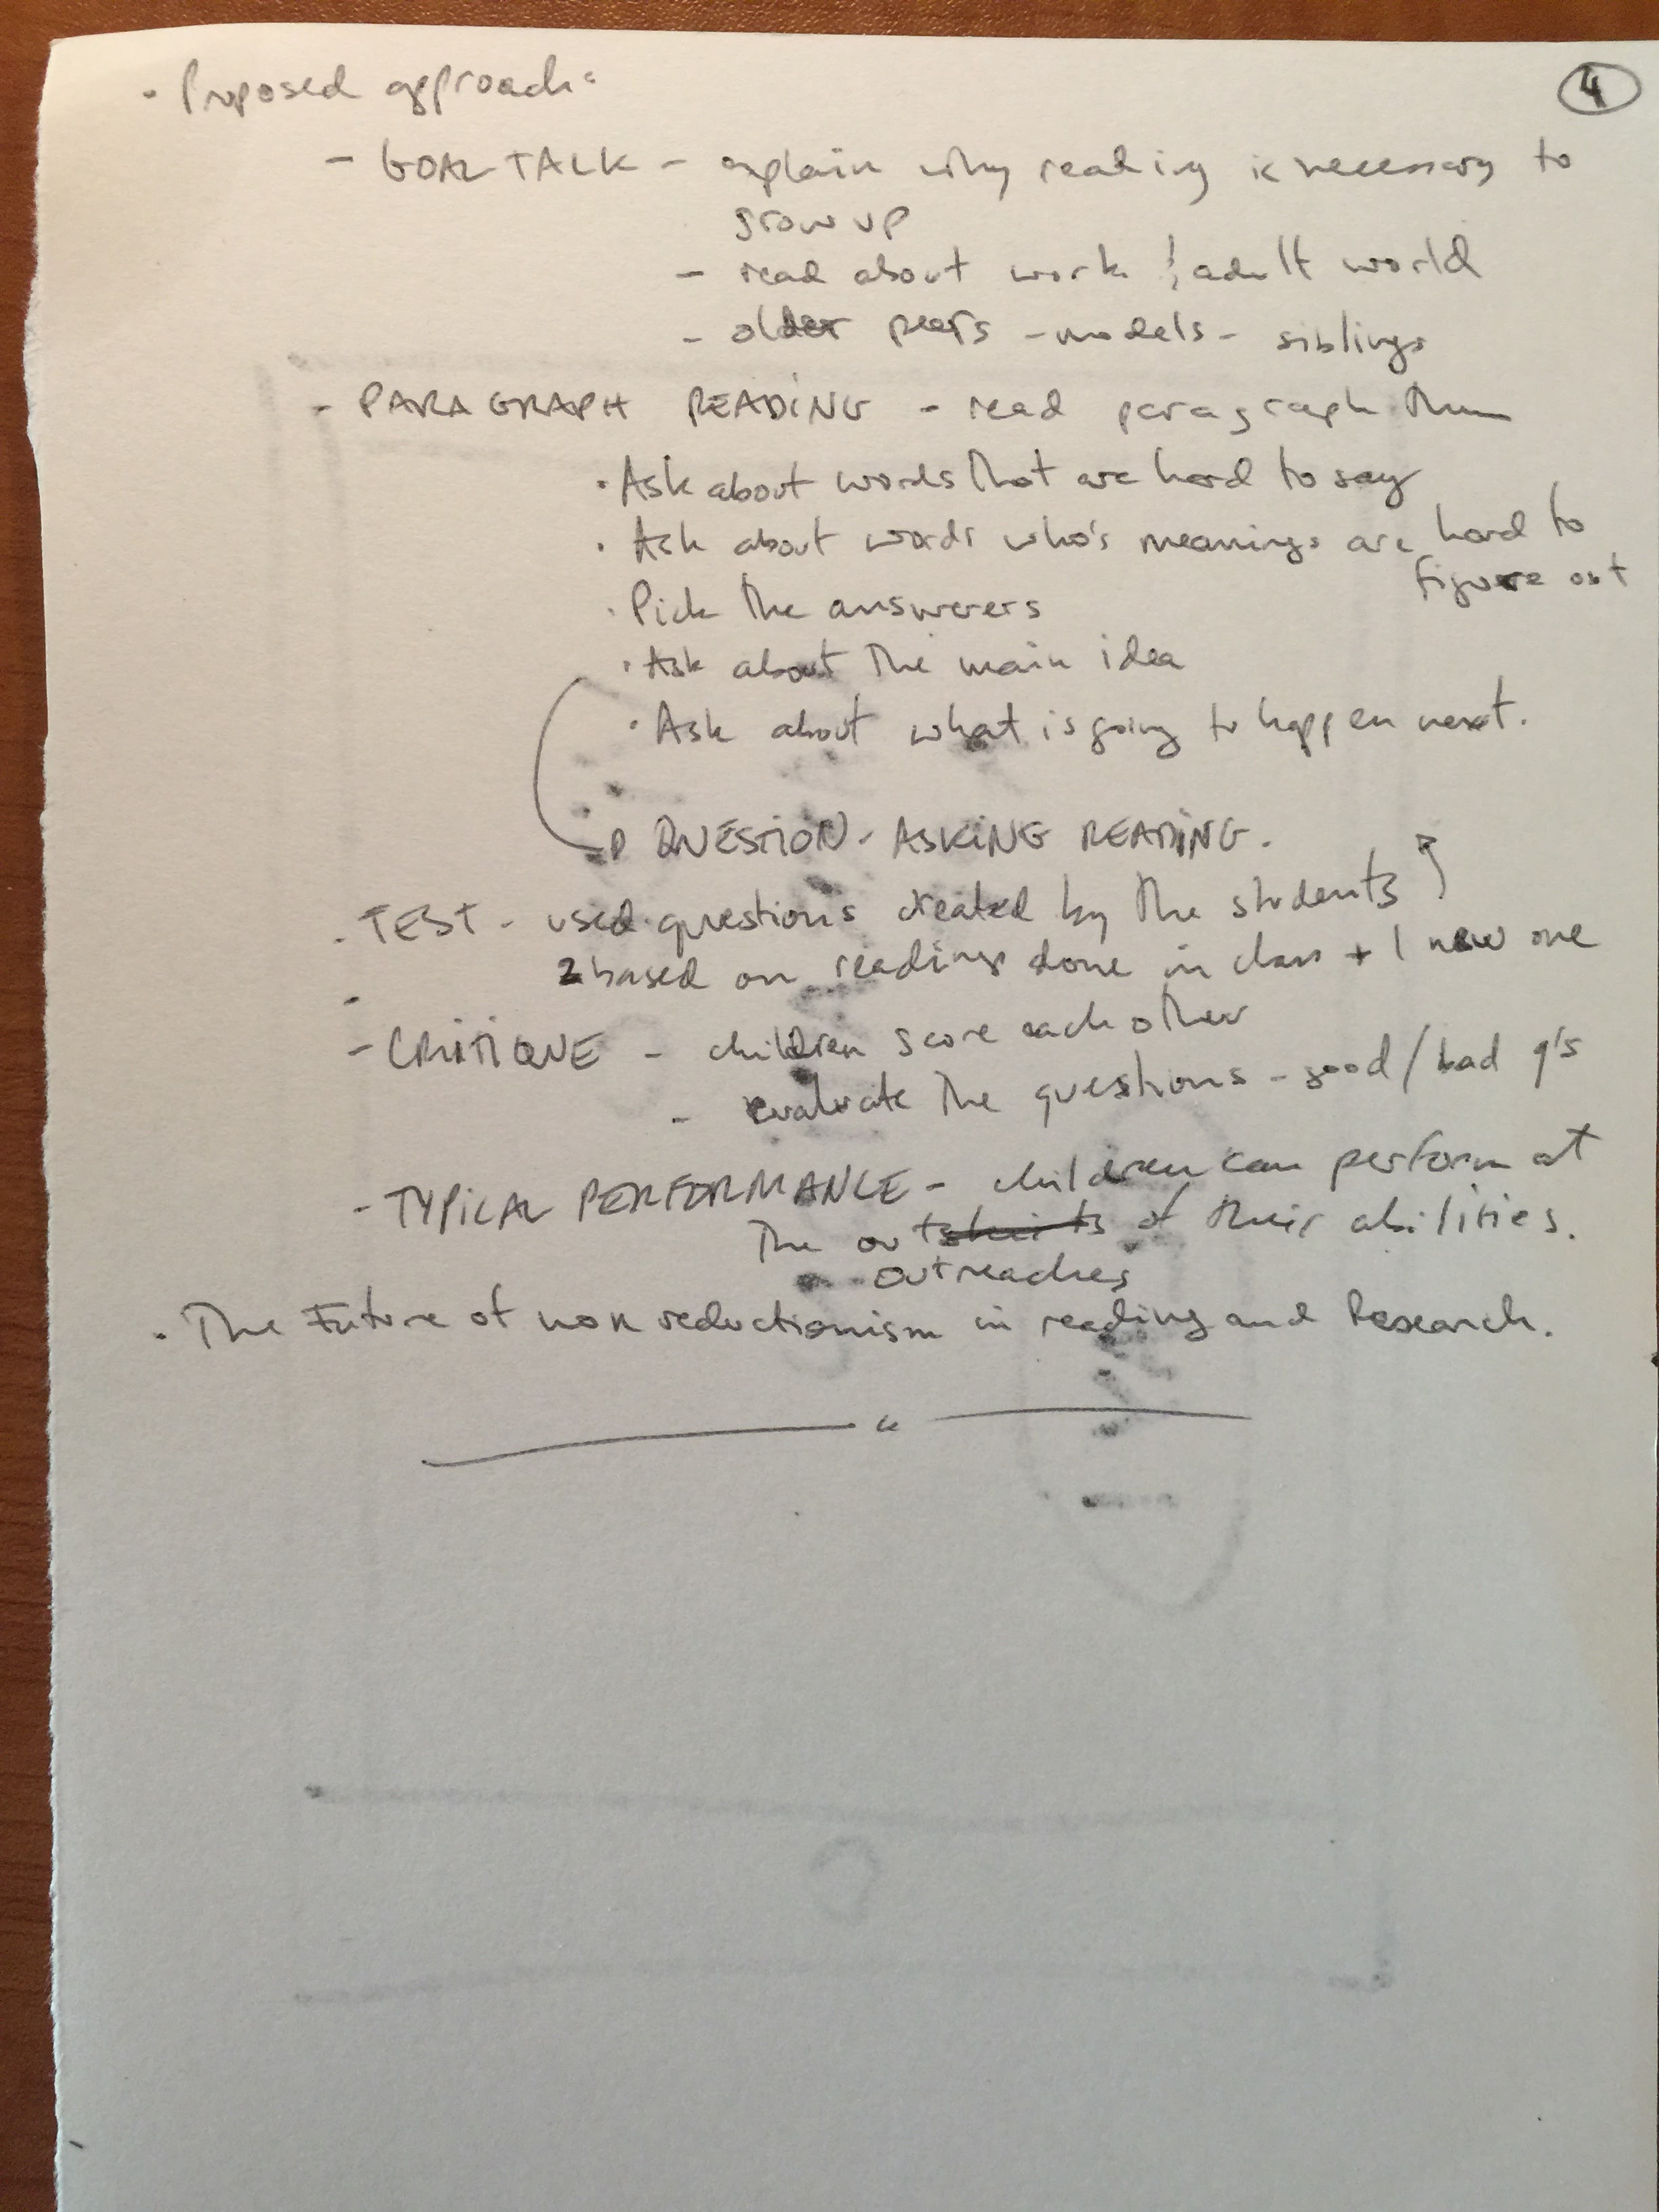 · Proposed approach:
4
- GOAL TALK - explain why reading is necessary to
grow up
- read about work & adult world
- older peers - models - siblings
- PARAGRAPH READING - read paragraph then
· Ask about words that are hard to say
· Ask about words who's meanings are hard to
figure out
· Pick the answerers
· Ask about the main idea
· Ask about what is going to happen next.
QUESTION-ASKING READING.
· TEST - used questions created by the students
2 based on readings done in class + 1 new one
- CRITIQUE - children score each other
- evaluate the questions - good/bad q's
- TYPICAL PERFORMANCE - children can perform at
the outskirts of their abilities.
outreaches
· The Future of non reductionism in reading and Research.